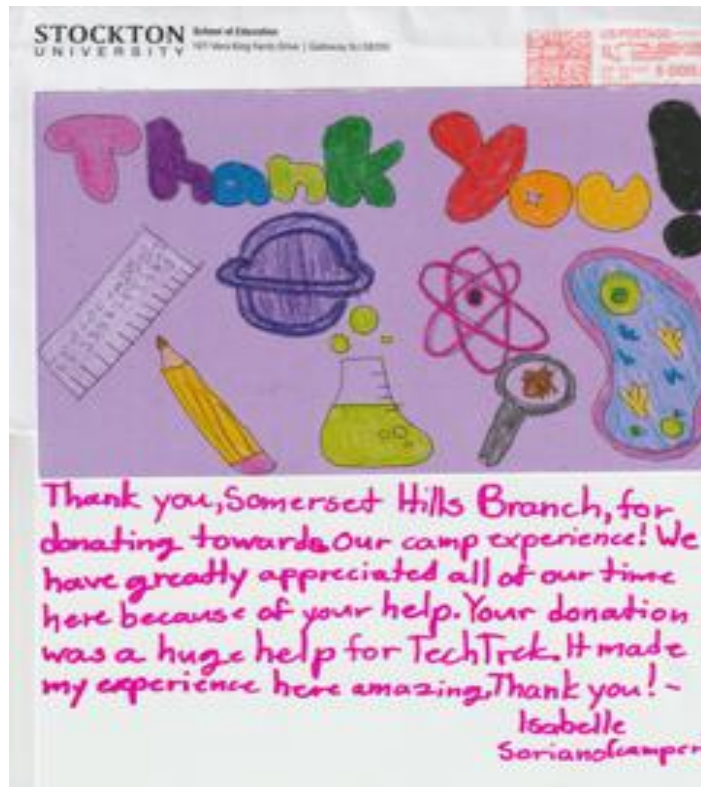 STOCKTON
UNIVERSITY
School of Education
Thank You!
Thank you, Somerset Hills Branch, for
donating towards our camp experience! We
have greatly appreciated all of our time
here because of your help. Your donation
was a huge help for TechTrek. It made
my experience here amazing, Thank you! ~
Isabelle
Soriano (camper